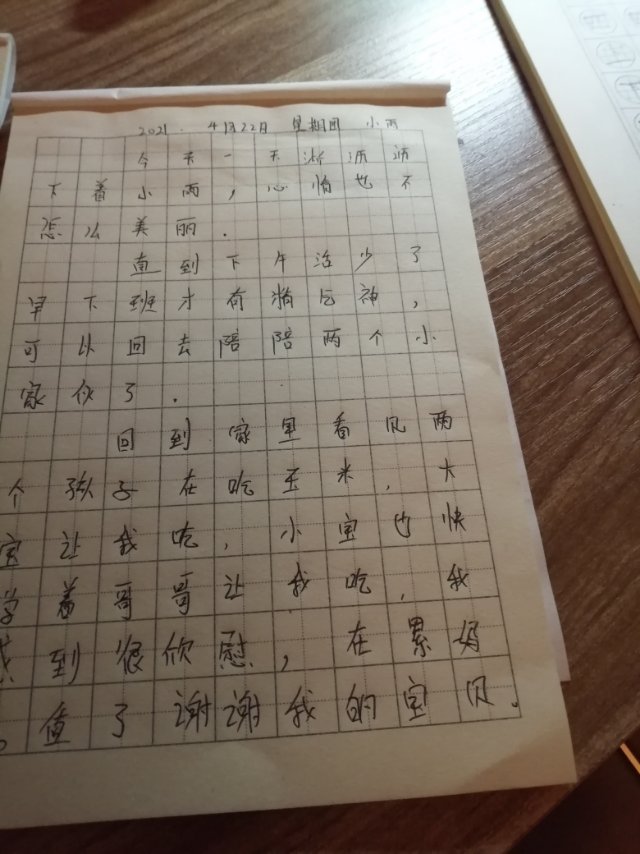 2021. 4月22日 星期四 小雨
今天一天淅沥沥
下着小雨，心情也不
怎么美丽.
直到下午活少了
早下班才有精气神，
可以回去陪陪两个小
家伙了.
回到家里看见两
个孩子在吃玉米，大
宝让我吃，小宝也快
学着哥哥让我吃，我
感到很欣慰，在累都
值了谢谢我的宝贝。